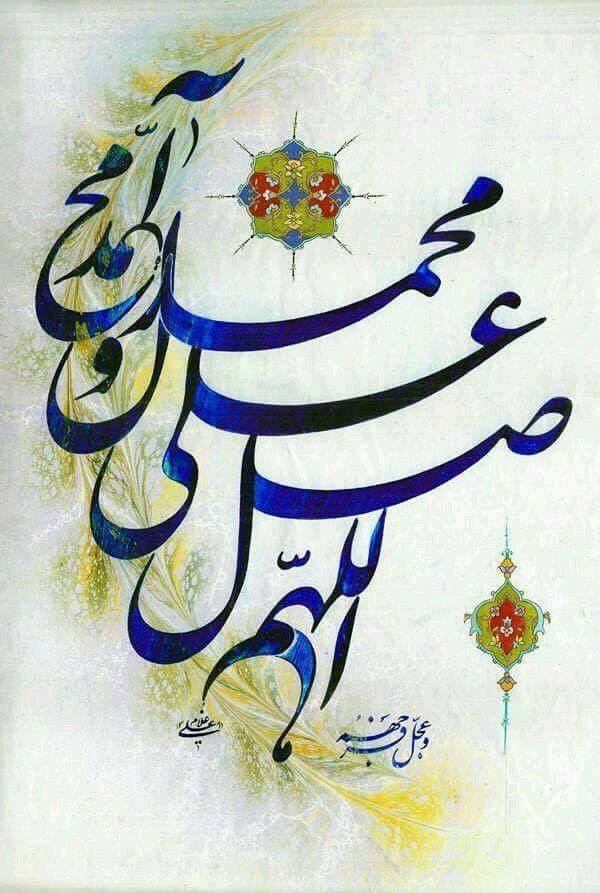 اللّهم
صل
علی
محمد
و آل محمد
و عجّل فرجهم
غلامعلی